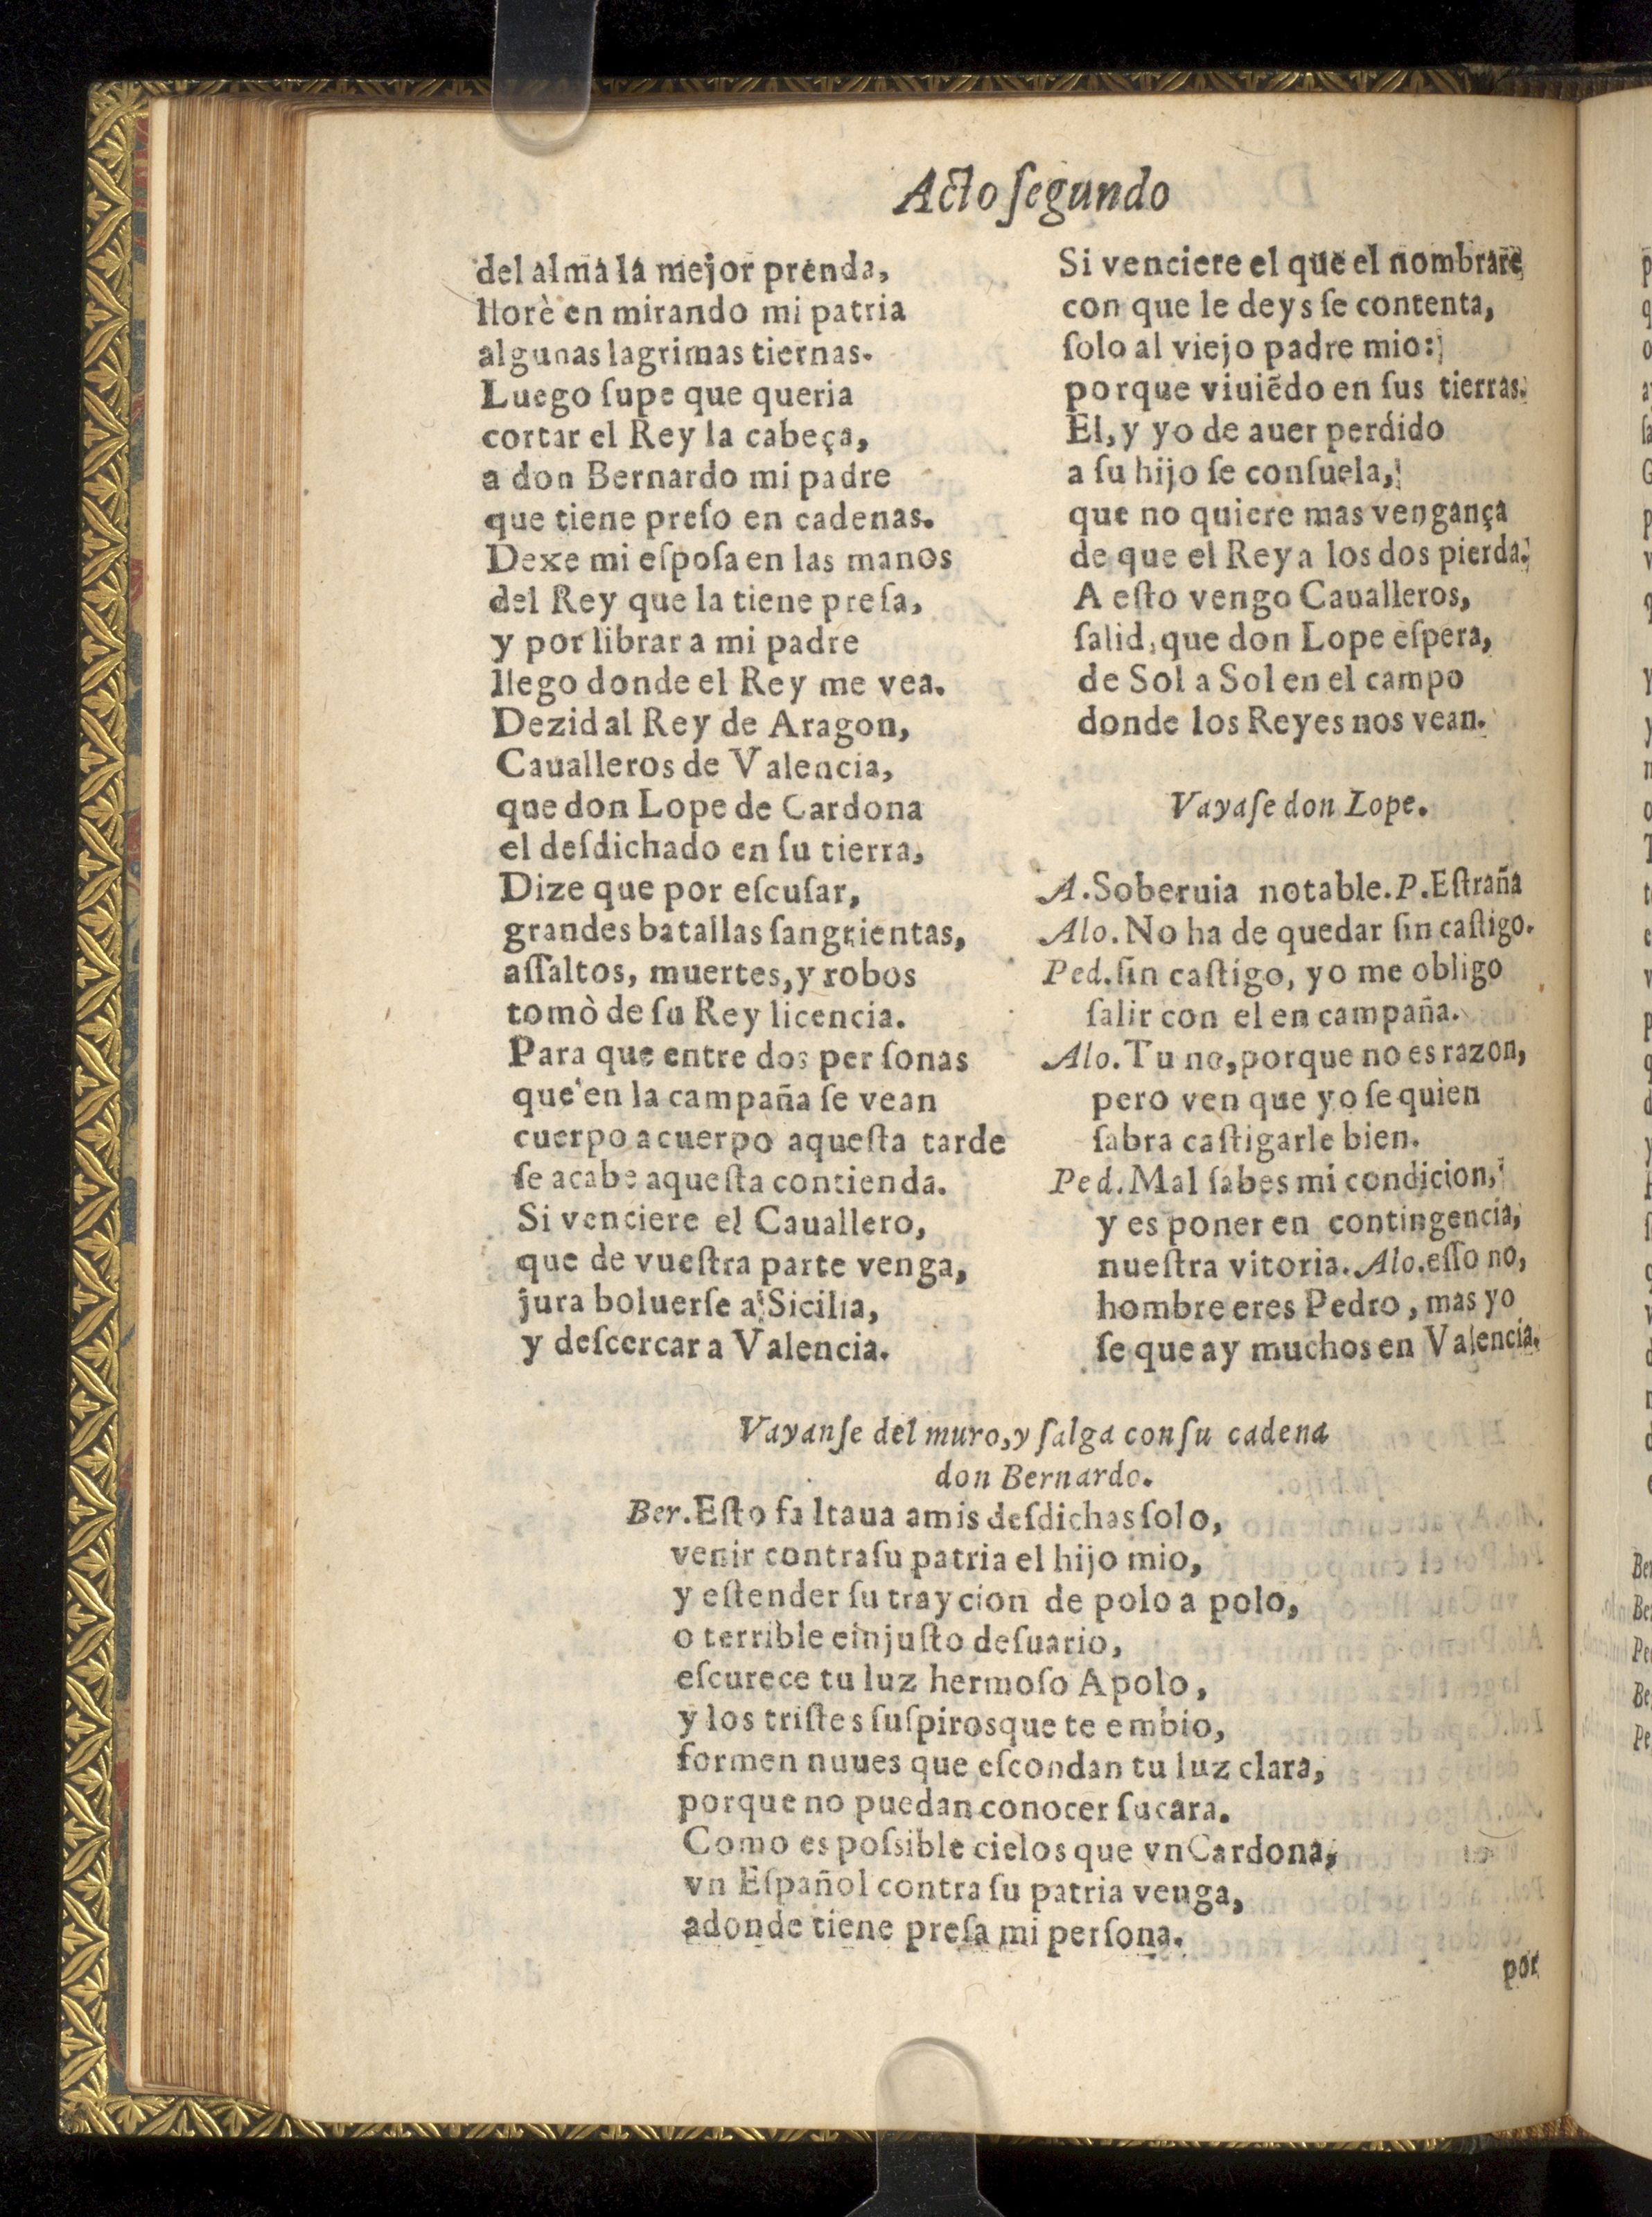 Acto ſegundo
del alma la mejor prenda,
llorè en mirando mi patria
algunas lagrimas tiernas.
Luego ſupe que queria
cortar el Rey la cabeça,
a don Bernardo mi padre
que tiene preſo en cadenas.
Dexe mi eſpoſa en las manos
del Rey que la tiene preſa,
y por librar a mi padre
llego donde el Rey me vea.
Dezid al Rey de Aragon,
Caualleros de Valencia,
que don Lope de Cardona
el deſdichado en ſu tierra,
Dize que por eſcuſar,
grandes batallas ſangrientas,
aſſaltos, muertes, y robos
tomò de ſu Rey licencia.
Para que entre dos perſonas
que en la campaña ſe vean
cuerpo a cuerpo aqueſta tarde
ſe acabe aqueſta contienda.
Si venciere el Cauallero,
que de vueſtra parte venga,
jura boluerſe a Sicilia,
y deſcercar a Valencia.
Si venciere el que el nombrare
con que le deys ſe contenta,
ſolo al viejo padre mio:
porque viuiẽdo en ſus tierras.
El, y yo de auer perdido
a ſu hijo ſe conſuela,
que no quiere mas vengança
de que el Rey a los dos pierda.
A eſto vengo Caualleros,
ſalid, que don Lope eſpera,
de Sol a Sol en el campo
donde los Reyes nos vean.
Vayaſe don Lope.
A. Soberuia notable. P. Eſtraña
Alo. No ha de quedar ſin caſtigo.
Ped. ſin caſtigo, yo me obligo
ſalir con el en campaña.
Alo. Tu no, porque no es razon,
pero ven que yo ſe quien
ſabra caſtigarle bien.
Ped. Mal ſabes mi condicion,
y es poner en contingencia,
nueſtra vitoria. Alo. eſſo no,
hombre eres Pedro, mas yo
ſe que ay muchos en Valencia.
Vayanſe del muro, y ſalga con ſu cadena
don Bernardo.
Ber. Eſto faltaua a mis deſdichas ſolo,
venir contra ſu patria el hijo mio,
y eſtender ſu traycion de polo a polo,
o terrible e injuſto deſuario,
eſcurece tu luz hermoſo Apolo,
y los triſtes ſuſpiros que te embio,
formen nuues que eſcondan tu luz clara,
porque no puedan conocer ſu cara.
Como es poſsible cielos que vn Cardona,
vn Eſpañol contra ſu patria venga,
adonde tiene preſa mi perſona.
por